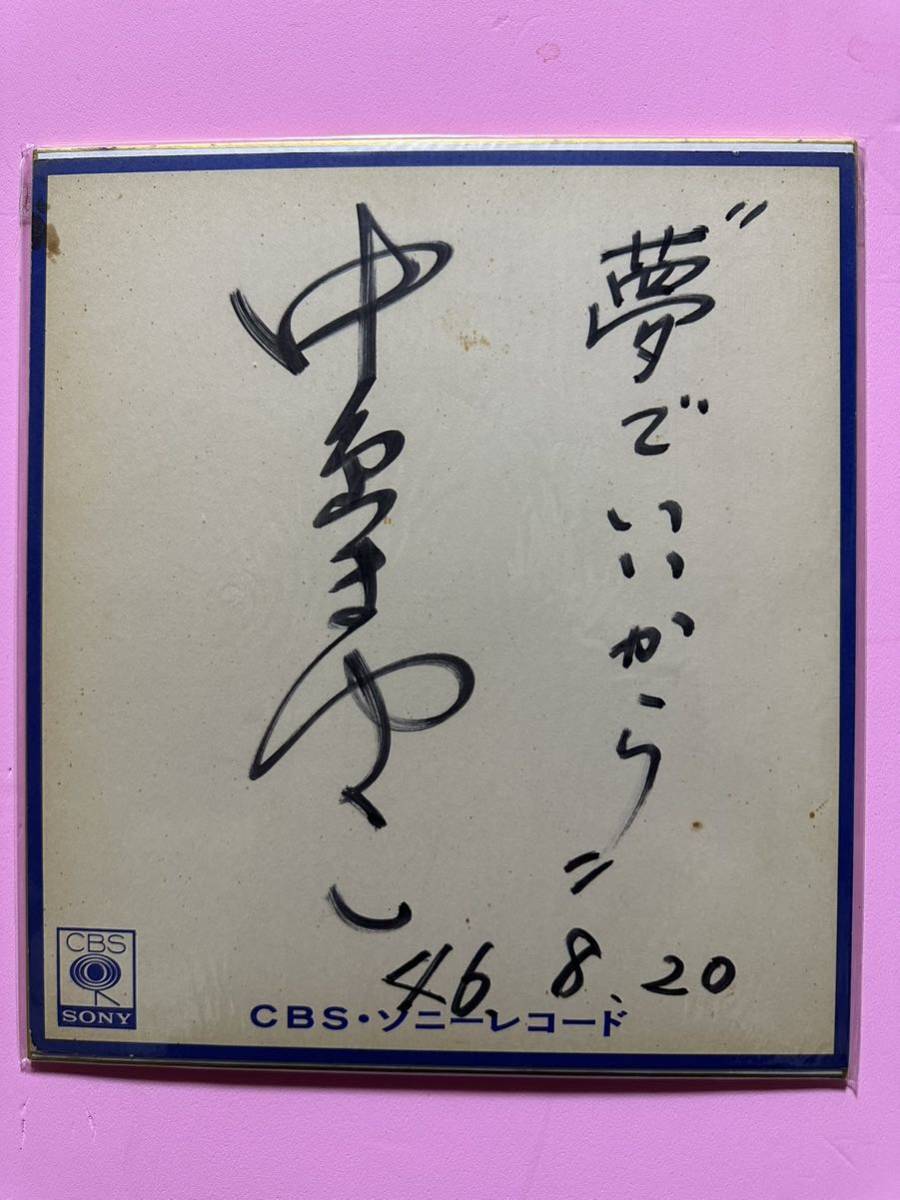 "夢でいいから"
中島まゆこ
46.8.20
CBS
SONY
CBS・ソニーレコード